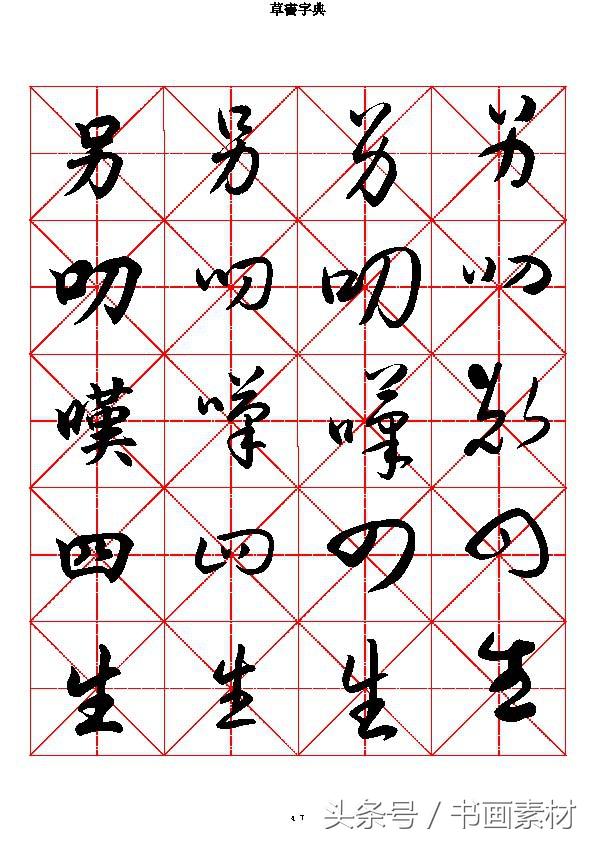 草書字典
另 另 另 另
叨 叨 叨 叨
嘆 嘆 嘆 嘆
四 四 四 四
生 生 生 生
47
头条号 / 书画素材